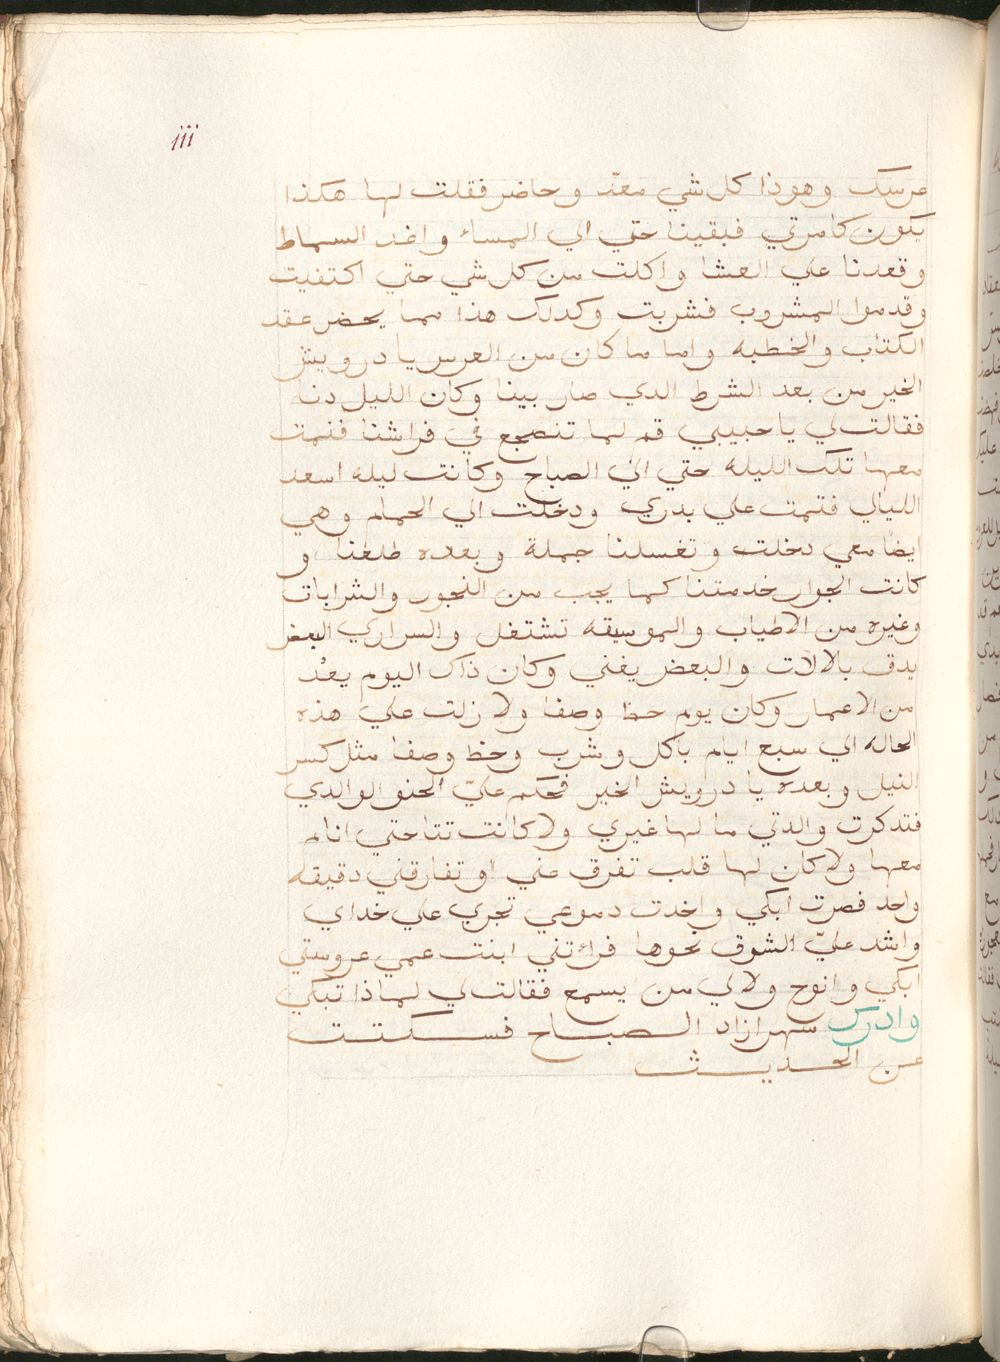 iii
عرسك وهوذا كل شي معدّ وحاضر فقلت لها هكذا
يكون كامرتي فبقينا حتي الي المساء واغد السماط
وقعدنا علي العشا واكلت من كل شي حتي اكتفيت
وقدموا المشروب فشربت وكدلك هذا مما يحضر عقد
الكتاب والخطبه واما ما كان من العرس يا درويش
الخير من بعد الشرط الدي صار بينا وكان الليل دنا
فقالت لي يا حبيبي قم لما تنضجع في فراشنا فنمت
معها تلك الليله حتي الي الصباح وكانت ليله اسعد
الليالي فتمت علي بدري ودخلت الي الحمام وهي
ايضا معي دخلت وتغسلنا جملة وبعده طلعنا و
كانت الجوار خدمتنا كما يجب من النجور والشرابات
وغيره من الاطياب والموسيقه تشتغل والسراري البعض
يدق بالالات والبعض يغني وكان ذاك اليوم يعد
من الاعمار وكان يوم حظ وصفا ولا زلت علي هذه
الحاله الي سبع ايام باكل وشرب وحظ وصفا مثل كسر
النيل وبعده يا درويش الخير فحكم عليّ الحنو الوالدي
فتدكرت والدتي ما لها غيري ولا كانت تتاحتي انام
معها ولا كان لها قلب تفرق مني او تفارقني دقيقه
واحد فصرت ابكي واخدت دموعي تجري علي خداي
واشد عليّ الشوق نحوها فرائتني ابنت عمي عروستي
ابكي وانوح ولالي من يسمع فقالت لي لماذا تبكي
وادرك سهرازاد الصباح فسكتت
عن الحديث